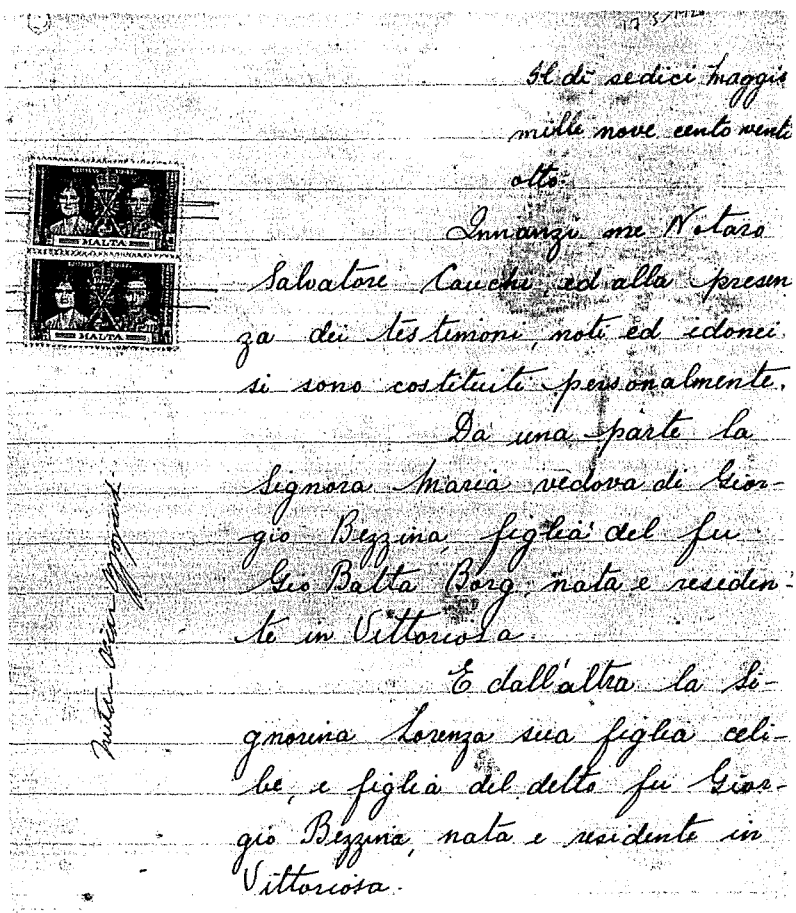 Il dì sedici Maggio
mille nove cento venti
otto.
Innanzi me Notaro
Salvatore Cauchi ed alla presen
za dei testimoni, noti ed idonei
si sono costituite personalmente.
Da una parte la
Signora Maria vedova di Gior-
gio Bezzina, figlia del fu
Gio Batta Borg, nata e residen-
te in Vittoriosa.
E dall'altra la Si-
gnorina Lorenza sua figlia celi-
be, e figlia del detto fu Gior-
gio Bezzina, nata e residente in
Vittoriosa.
MALTA
MALTA